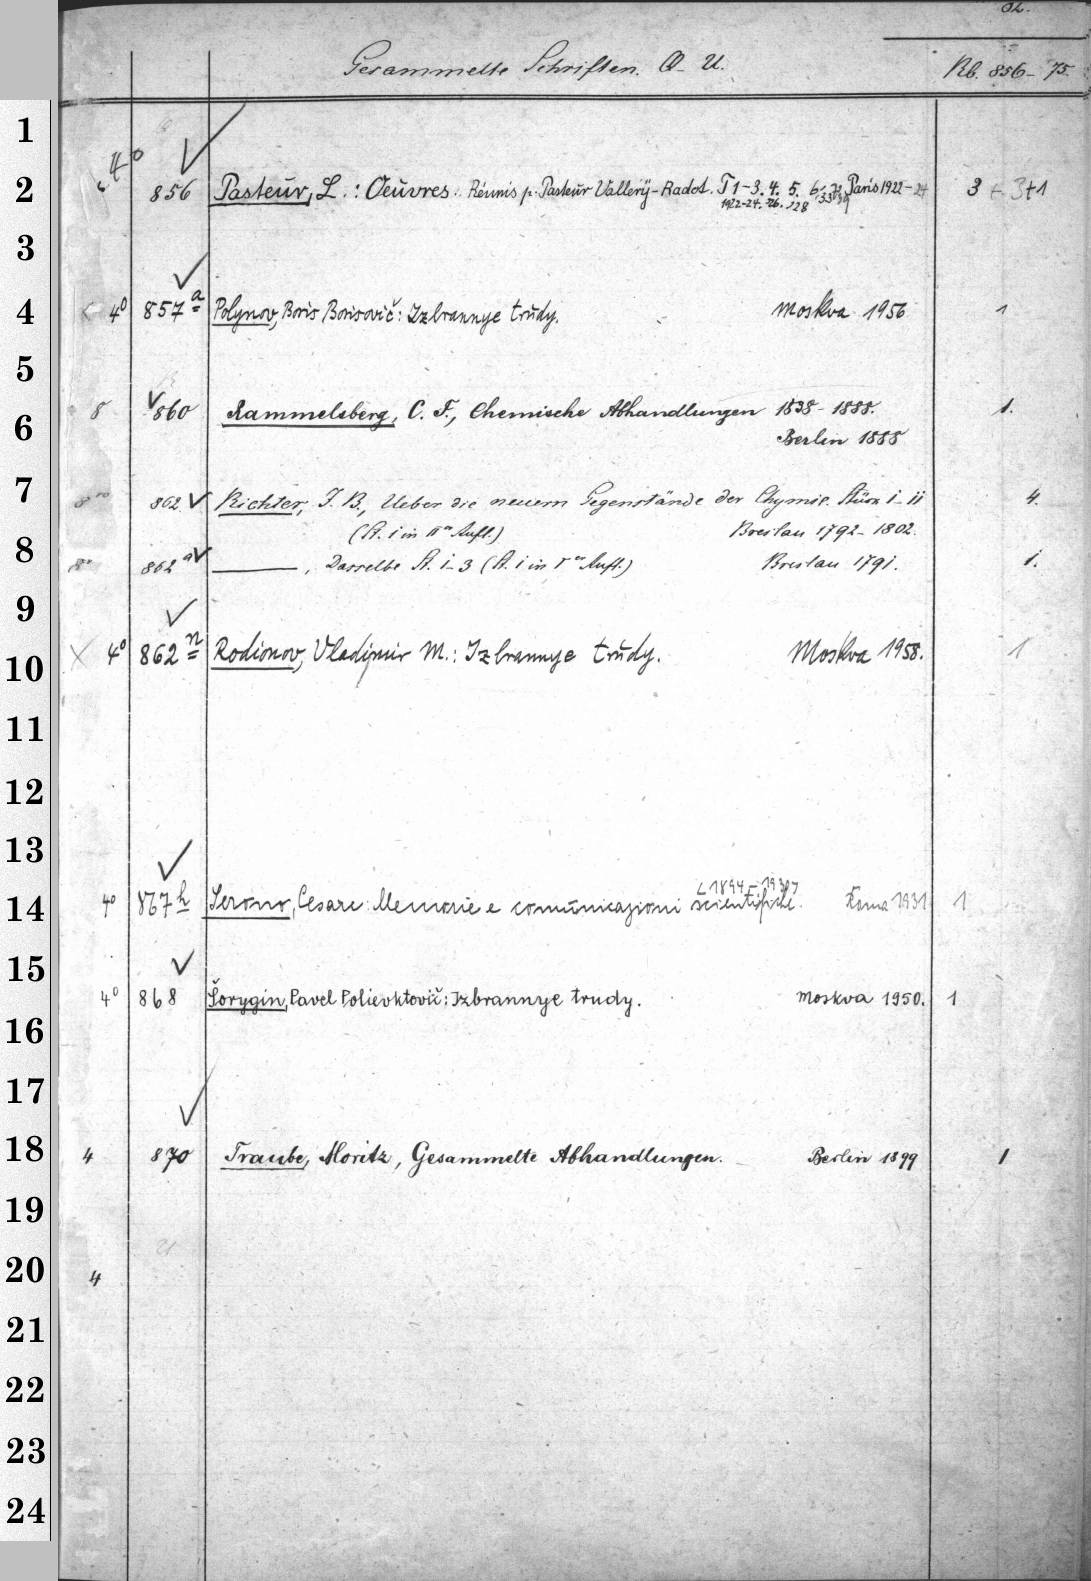 Gesammelte Schriften. Q-U. Rb. 856-75.
1
2 4° 856 Pasteur, L.: Oeuvres. Réunis p. Pasteur Vallery-Radot. T 1-3. 4. 5. 6. 7. Paris 1922- 3 + 3+1
1922-24. 26. 28 33 39
3
4 4° 857ª Polynov, Boris Borisovič: Izbrannye trudy. Moskva 1956 1
5
6 8 860 Rammelsberg, C. F., Chemische Abhandlungen 1838-1888. 1.
Berlin 1888
7 8vo 862 Richter, J. B., Ueber die neuern Gegenstände der Chymie. Stück i-ii 4.
(St. i in IIr Aufl.) Breslau 1792-1802.
8 8vo 862a ——, Dasselbe St. i-3 (St. i in Ir Aufl.) Breslau 1791. 1.
9
10 4° 862n Rodionov, Vladimir M.: Izbrannye trudy. Moskva 1958. 1
11
12
13
<1894-1930>
14 4° 867h Serono, Cesare: Memorie e comunicazioni scientifiche. Roma 1931 1
15
16 4° 868 Šorygin, Pavel Polievktovič: Izbrannye trudy. Moskva 1950. 1
17
18 4 870 Traube, Moritz, Gesammelte Abhandlungen. Berlin 1899 1
19
20 4
21
22
23
24